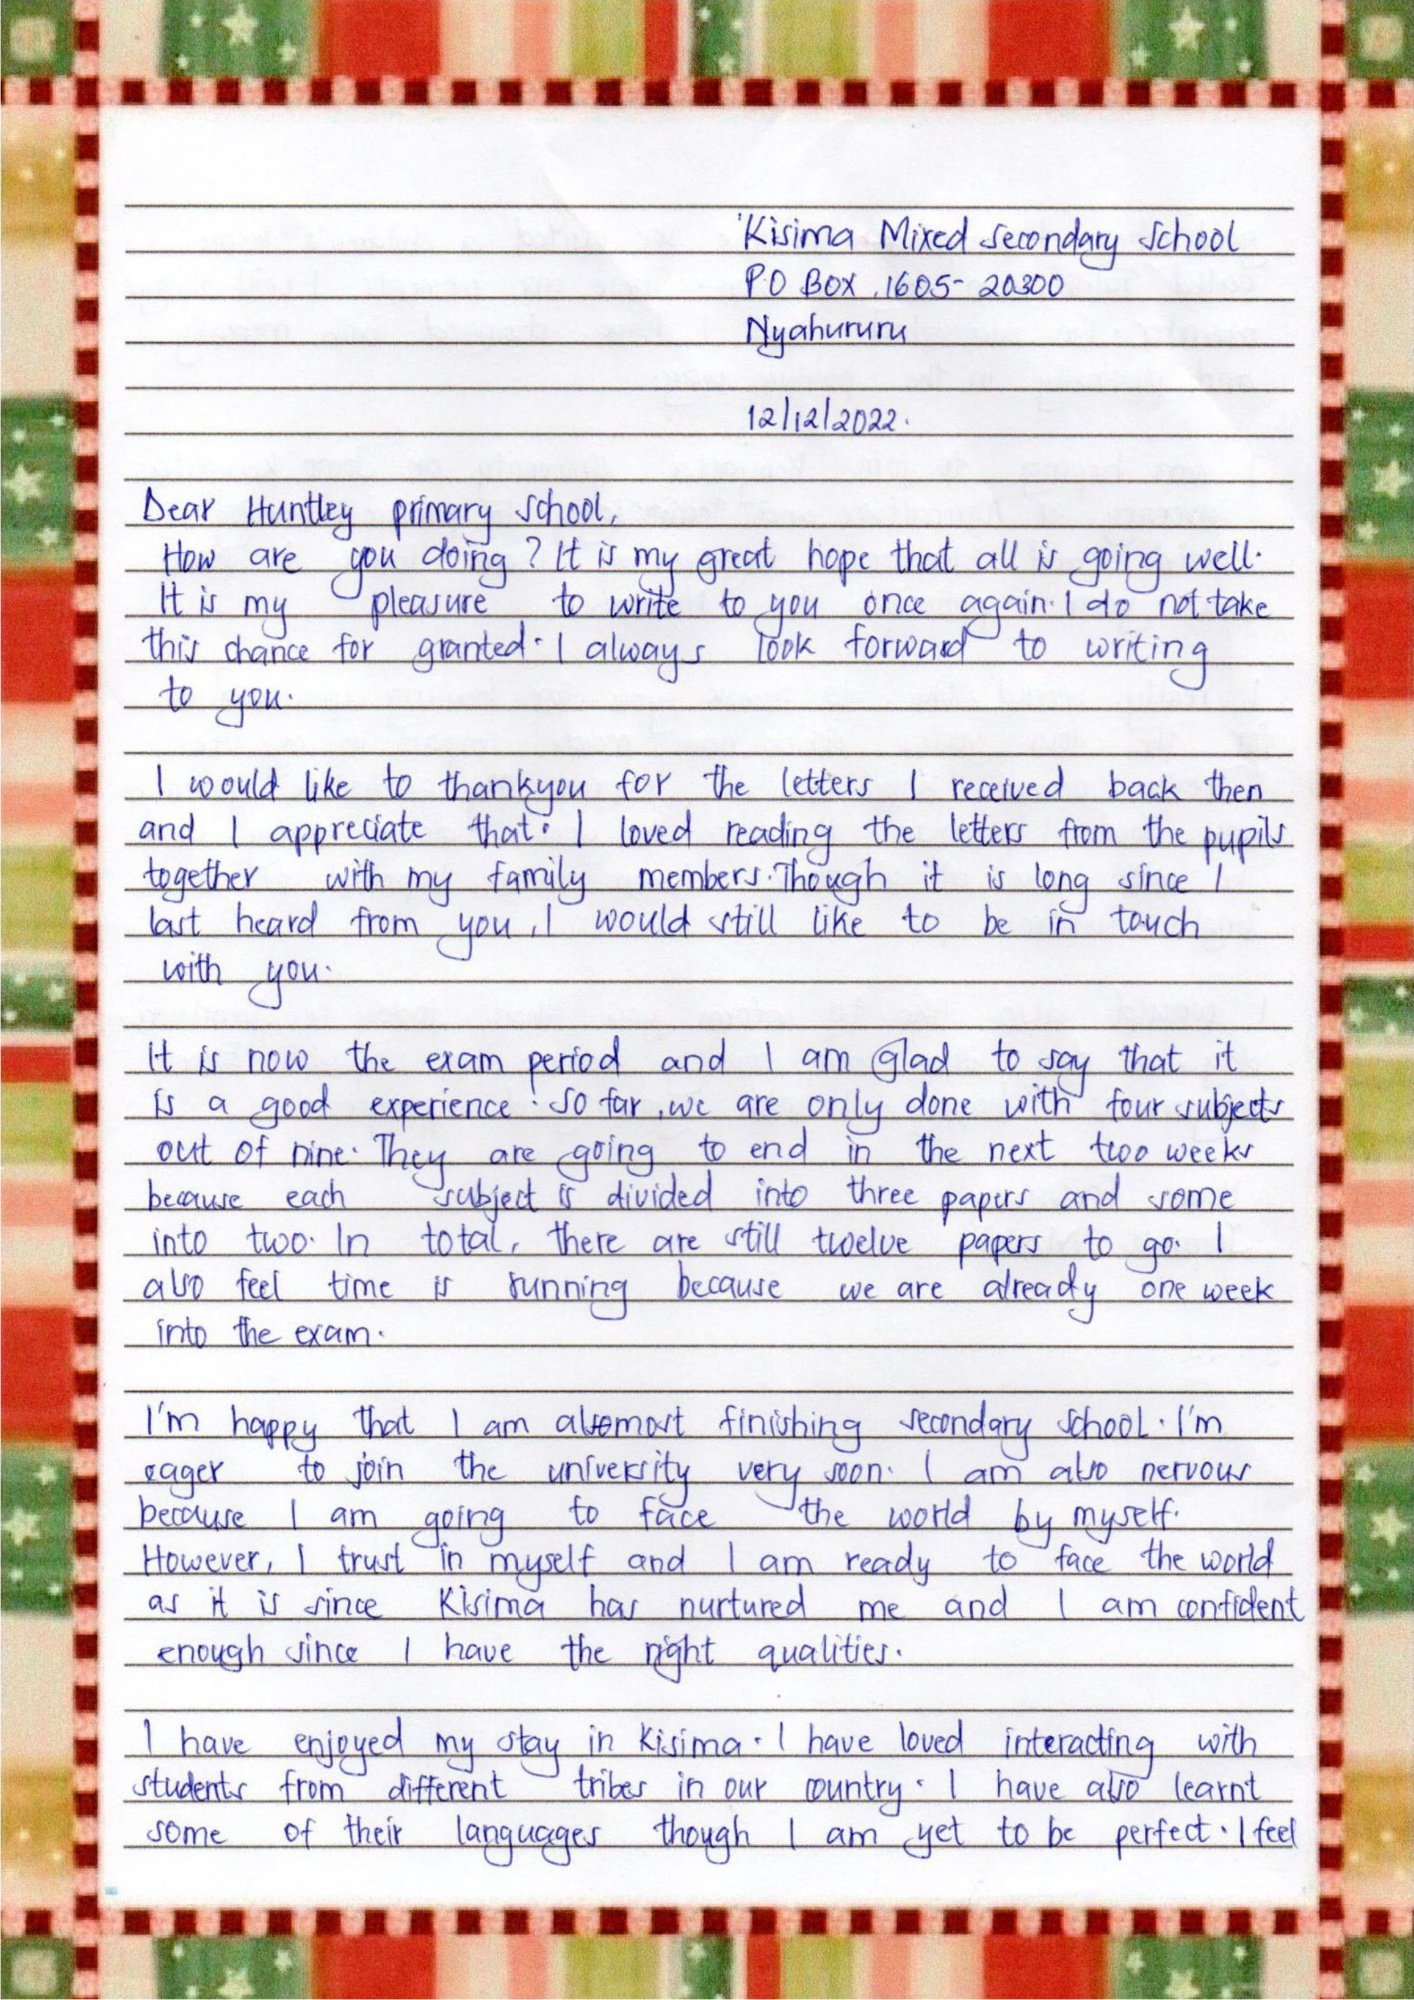 Kisima Mixed secondary school
P.O BOX .1605-20300
Nyahururu
12/12/2022.
Dear Huntley primary school,
How are you doing? It is my great hope that all is going well.
It is my pleasure to write to you once again. I do not take
this chance for granted. I always look forward to writing
to you.
I would like to thankyou for the letters I received back then
and I appreciate that. I loved reading the letters from the pupils
together with my family members. Though it is long since I
last heard from you, I would still like to be in touch
with you.
It is now the exam period and I am glad to say that it
is a good experience. So far, we are only done with four subjects
out of nine. They are going to end in the next two weeks
because each subject is divided into three papers and some
into two. In total, there are still twelve papers to go. I
also feel time is running because we are already one week
into the exam.
I'm happy that I am almost finishing secondary school. I'm
eager to join the university very soon. I am also nervous
because I am going to face the world by myself.
However, I trust in myself and I am ready to face the world
as it is since Kisima has nurtured me and I am confident
enough since I have the right qualities.
I have enjoyed my stay in Kisima. I have loved interacting with
students from different tribes in our country. I have also learnt
some of their languages though I am yet to be perfect. I feel